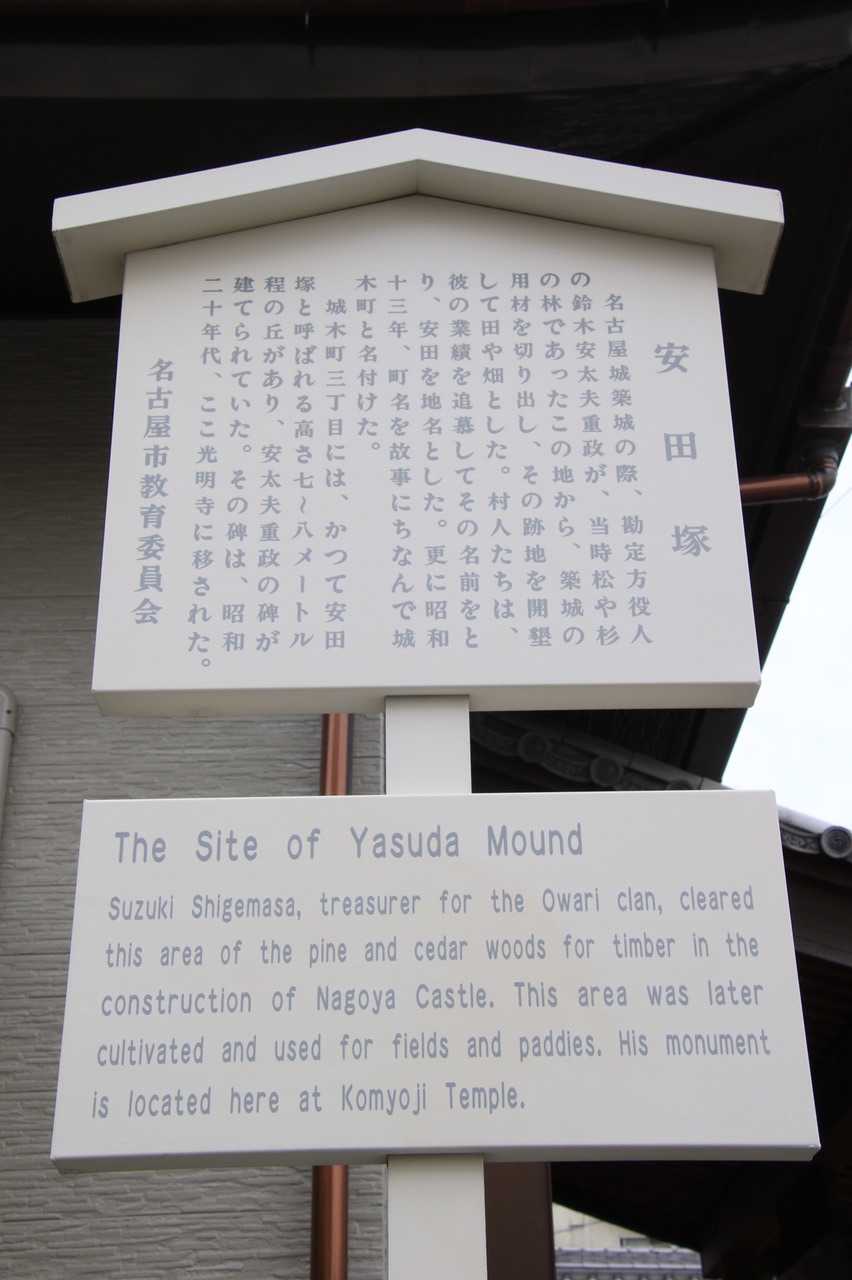 安田塚
名古屋城築城の際、勘定方役人
の鈴木安太夫重政が、当時松や杉
の林であったこの地から、築城の
用材を切り出し、その跡地を開墾
して田や畑とした。村人たちは、
彼の業績を追慕してその名前をと
り、安田を地名とした。更に昭和
十三年、町名を故事にちなんで城
木町と名付けた。
城木町三丁目には、かつて安田
塚と呼ばれる高さ七〜八メートル
程の丘があり、安太夫重政の碑が
建てられていた。その碑は、昭和
二十年代、ここ光明寺に移された。
名古屋市教育委員会
The Site of Yasuda Mound
Suzuki Shigemasa, treasurer for the Owari clan, cleared
this area of the pine and cedar woods for timber in the
construction of Nagoya Castle. This area was later
cultivated and used for fields and paddies. His monument
is located here at Komyoji Temple.